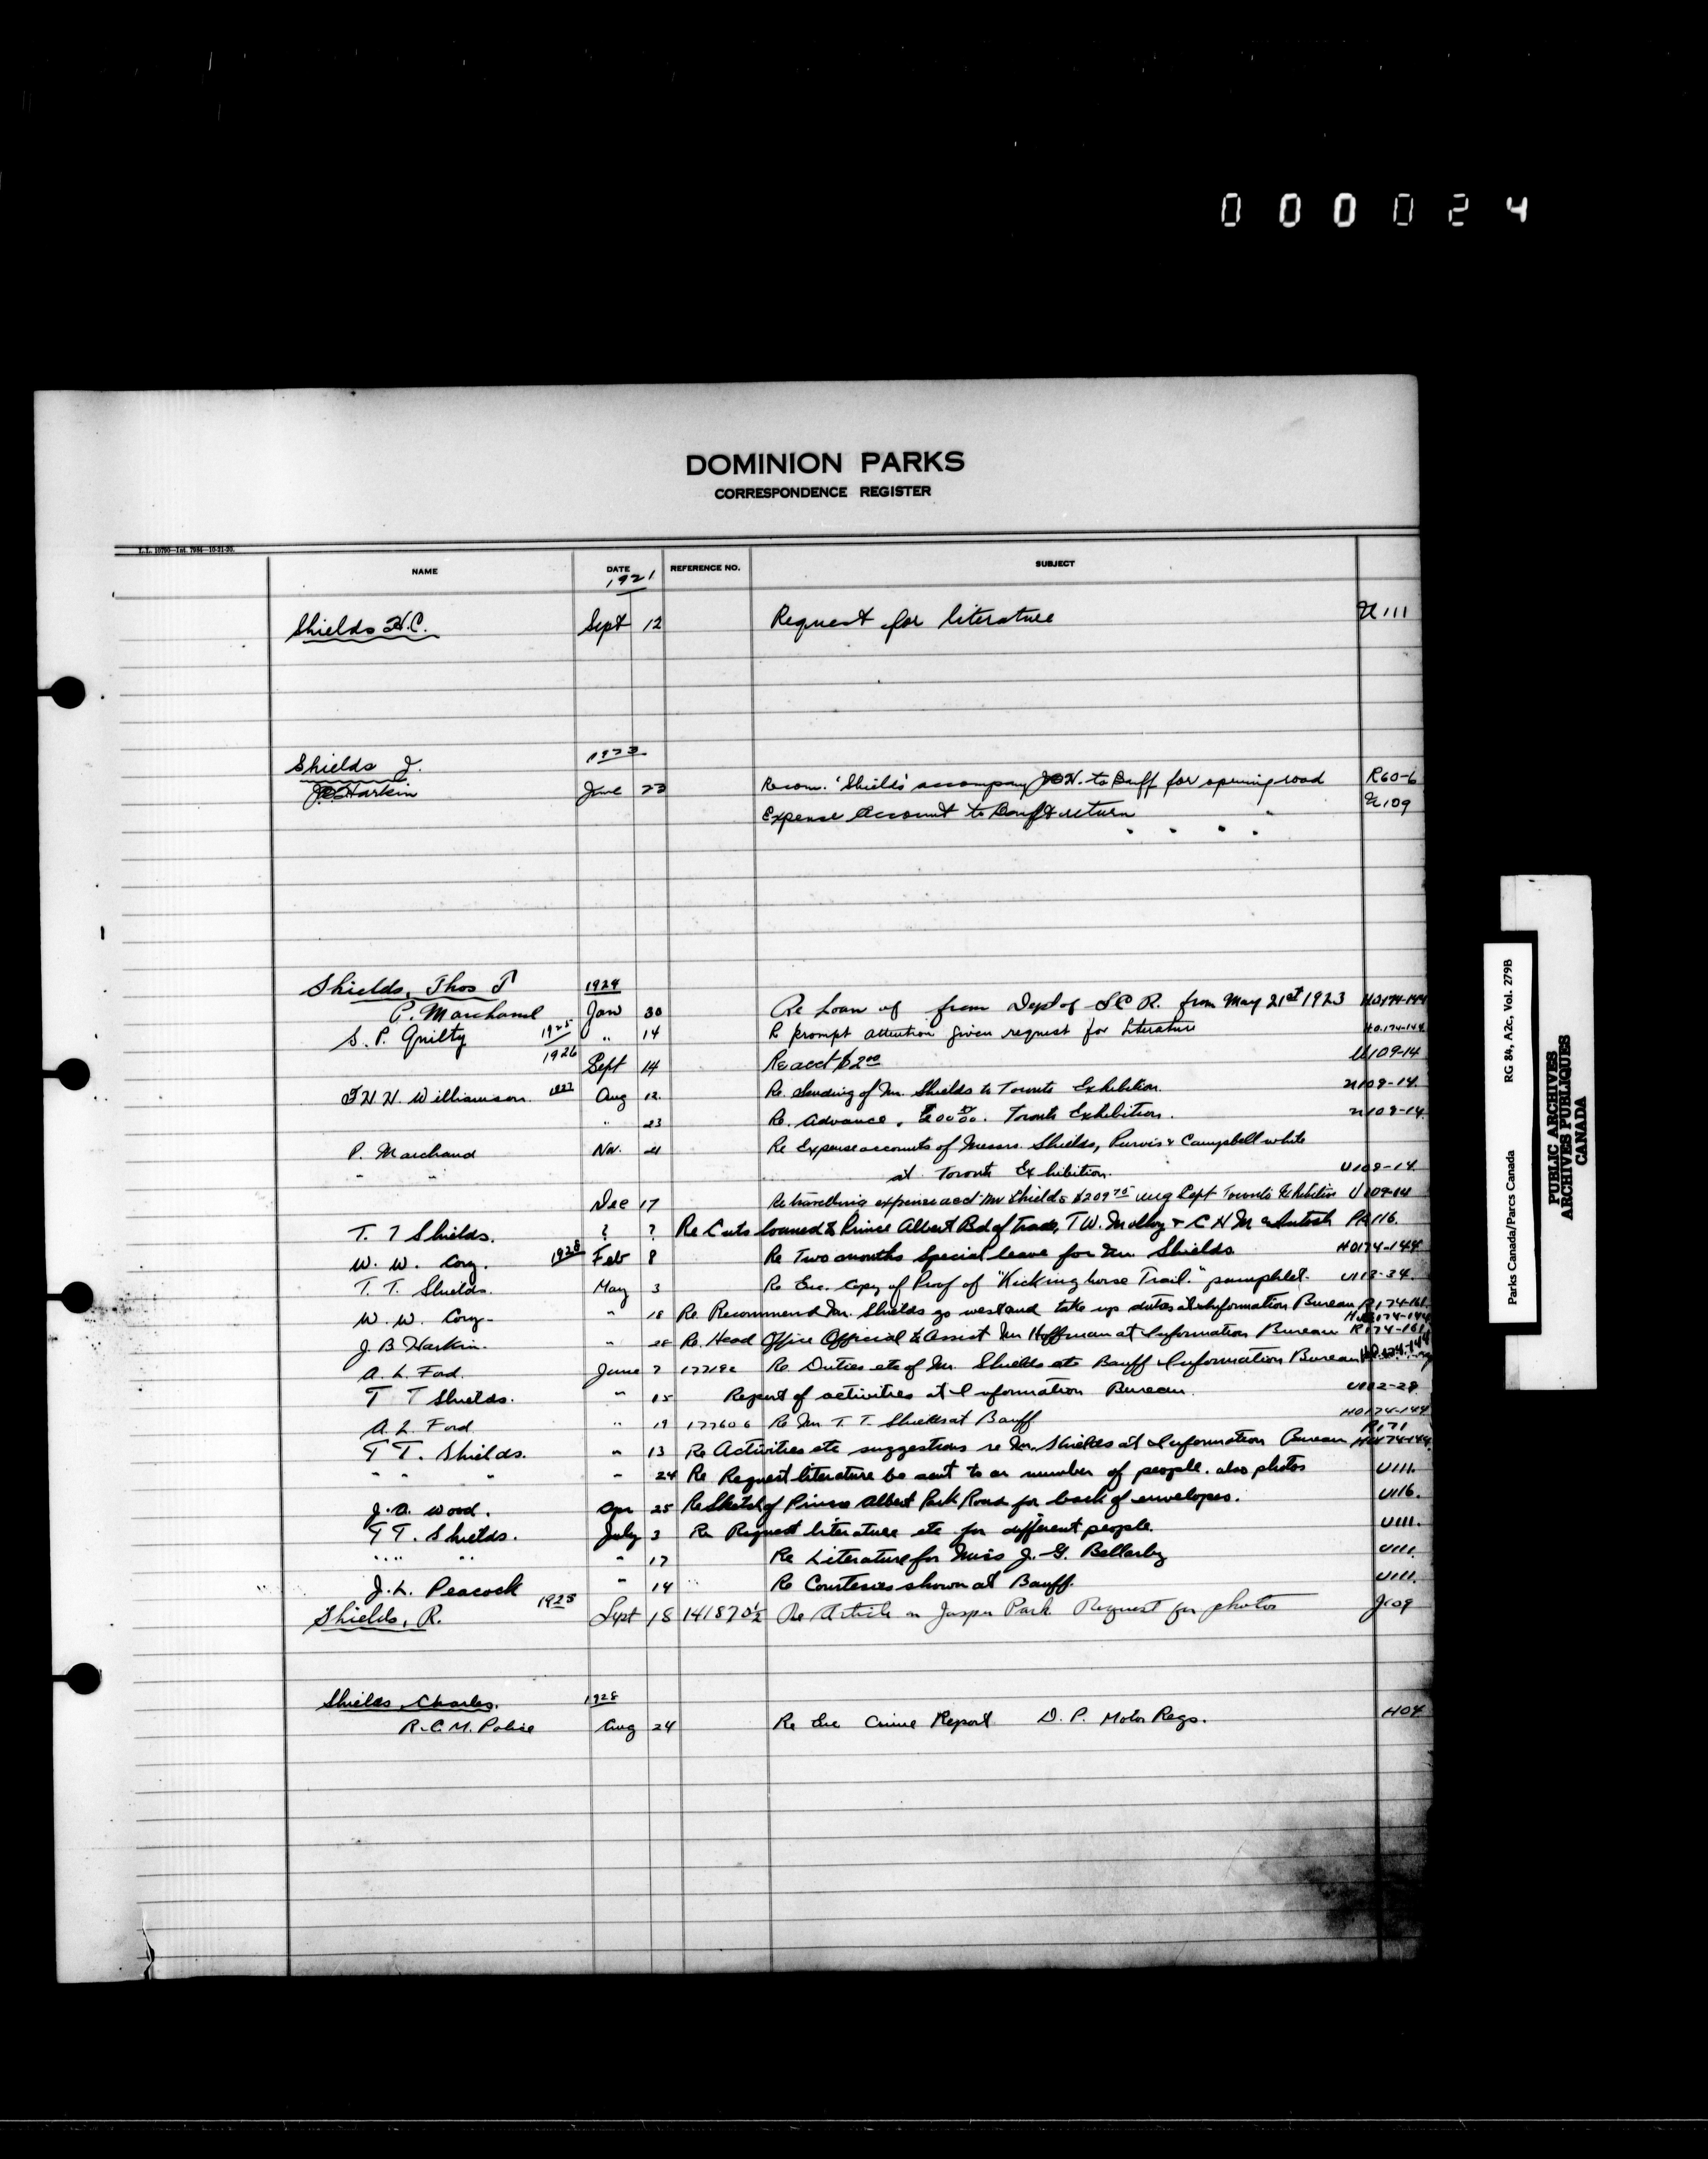 000024
DOMINION PARKS
CORRESPONDENCE REGISTER
NAME DATE REFERENCE NO. SUBJECT
1921
Shields H.C. Sept 12 Request for literature U111
Shields J. 1923
J.B. Harkin June 23 Recom. 'Shields' accompany to Banff for opening road R60-6
Expense Account to Banff & return U109
Shields, Thos T 1924
P. Marchand Jan 30 Re Loan of from Dept of S C R. from May 21st 1923 HO174-144
S. P. Quilty 1925 " 14 Re prompt attention given request for literature HO.174-144
1926 Sept 14 Re acct $2.00 U109-14
F H H Williamson 1927 Aug 12. Re. Sending of Mr. Shields to Toronto Exhibition. U109-14
" 23 Re. Advance, Toronto Exhibition. U109-14
P. Marchand Nov. 21 Re Expense accounts of Messrs. Shields, Purvis & Campbell white
" " at Toronto Exhibition. U109-14
Dec 17 Re travelling expense acct Mr Shields $209.75 Aug Sept Toronto Exhibition U109-14
T. T Shields. ? ? Re Cuts loaned to Prince Albert Bd of Trade, T W. Molloy & C H McIntosh PA116.
W. W. Cory. 1928 Feb 8 Re Two months Special leave for Mr. Shields HO174-144
T. T. Shields. May 3 Re Enc. Copy of Proof of "Kickinghorse Trail." pamphlet. U113-34
W. W. Cory- " 18 Re. Recommend Mr. Shields go west and take up duties at Information Bureau R174-161
HO174-144
J. B. Harkin. " 28 Re. Head Office Official to Assist Mr Hoffman at Information Bureau R174-161
A. L. Ford. June 7 Re. Duties etc of Mr. Shields etc Banff Information Bureau
T T Shields. " 15 Report of activities at Information Bureau. U112-28
A. L. Ford " 19 177606 Re Mr T. T. Shields at Banff HO174-144
R171
T T. Shields. " 13 Re Activities etc suggestions re Mr. Shields at Information Bureau HO174-144
" " " " 24 Re Request literature be sent to a number of people. also photos U111.
J. A. Wood. Apr 25 Re Sketch of Prince Albert Park Road for back of envelopes. U116.
T T. Shields. July 3 Re Request literature etc for different people. U111.
" " " " 17 Re Literature for Miss J. G. Bellarby U111.
J. L. Peacock " 14 Re Courtesies shown at Banff. U111.
Shields, R. 1925 Sept 18 141870½ Re Article on Jasper Park Request for photos J109
Shields Charles. 1928
R.C.M. Police Aug 24 Re Enc Crime Report D. P. Motor Regs. HO4
Parks Canada/Parcs Canada RG 84, A2c, Vol. 279B
PUBLIC ARCHIVES
ARCHIVES PUBLIQUES
CANADA